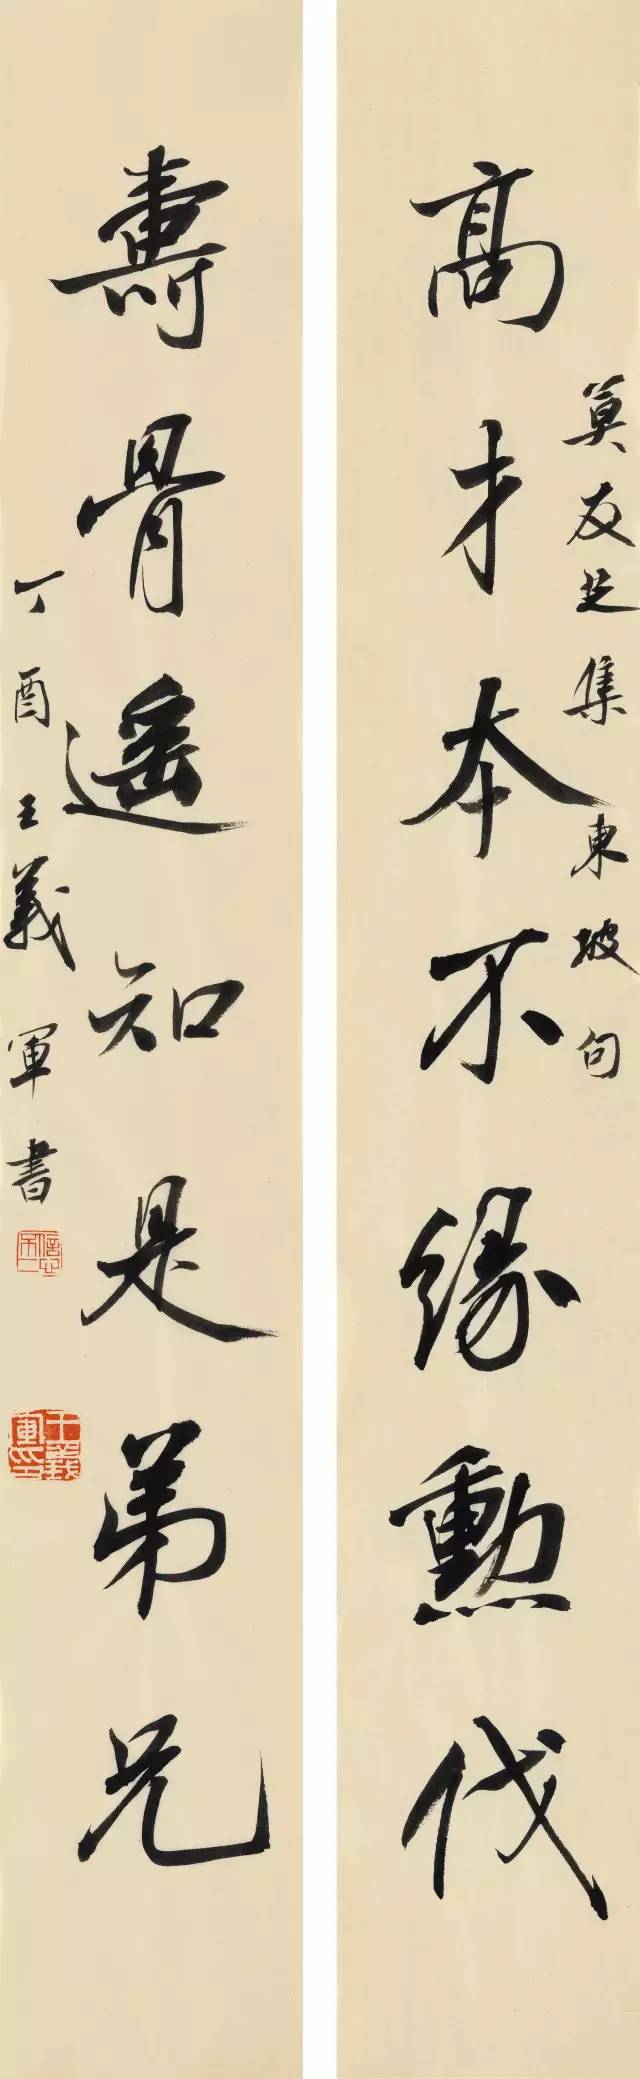 高才本不緣勳伐
莫友芝集東坡句
壽骨遥知是弟兄
丁酉王義軍書
王義軍印